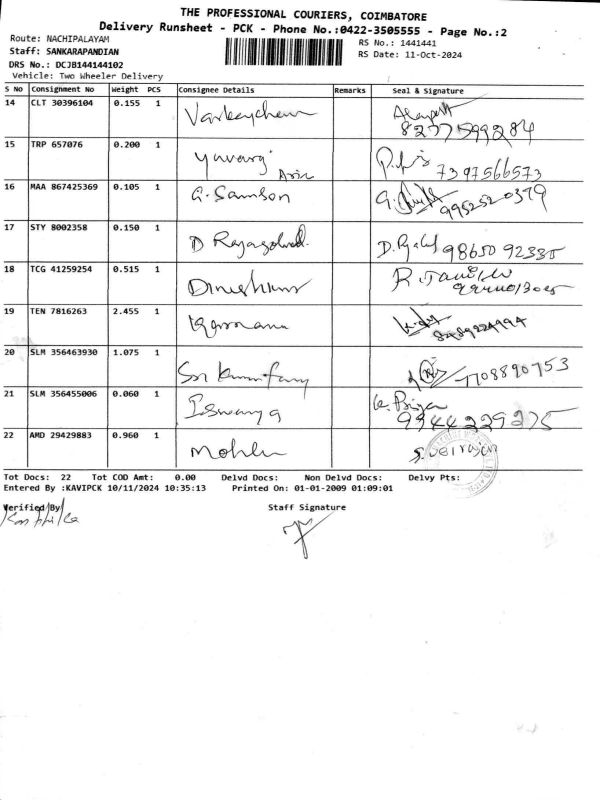 THE PROFESSIONAL COURIERS, COIMBATORE
Delivery Runsheet - PCK - Phone No.:0422-3505555 - Page No.:2
Route: NACHIPALAYAM
RS No.: 1441441
Staff: SANKARAPANDIAN
RS Date: 11-Oct-2024
DRS No.: DCJB144144102
Vehicle: Two Wheeler Delivery
S No Consignment No Weight PCS Consignee Details Remarks Seal & Signature
14 CLT 30396104 0.155 1
8277599284
15 TRP 657076 0.200 1 Yuvaraj
7397566573
16 MAA 867425369 0.105 1 G. Samson
9952520379
17 STY 8002358 0.150 1 D
98650 92335
18 TCG 41259254 0.515 1 Dineshkumar
19 TEN 7816263 2.455 1
8489224994
20 SLM 356463930 1.075 1
7708890753
21 SLM 356455006 0.060 1 Eswarya K. Priya
9944229275
22 AMD 29429883 0.960 1
Tot Docs: 22 Tot COD Amt: 0.00 Delvd Docs: Non Delvd Docs: Delvy Pts:
Entered By :KAVIPCK 10/11/2024 10:35:13 Printed On: 01-01-2009 01:09:01
Verified By
Staff Signature